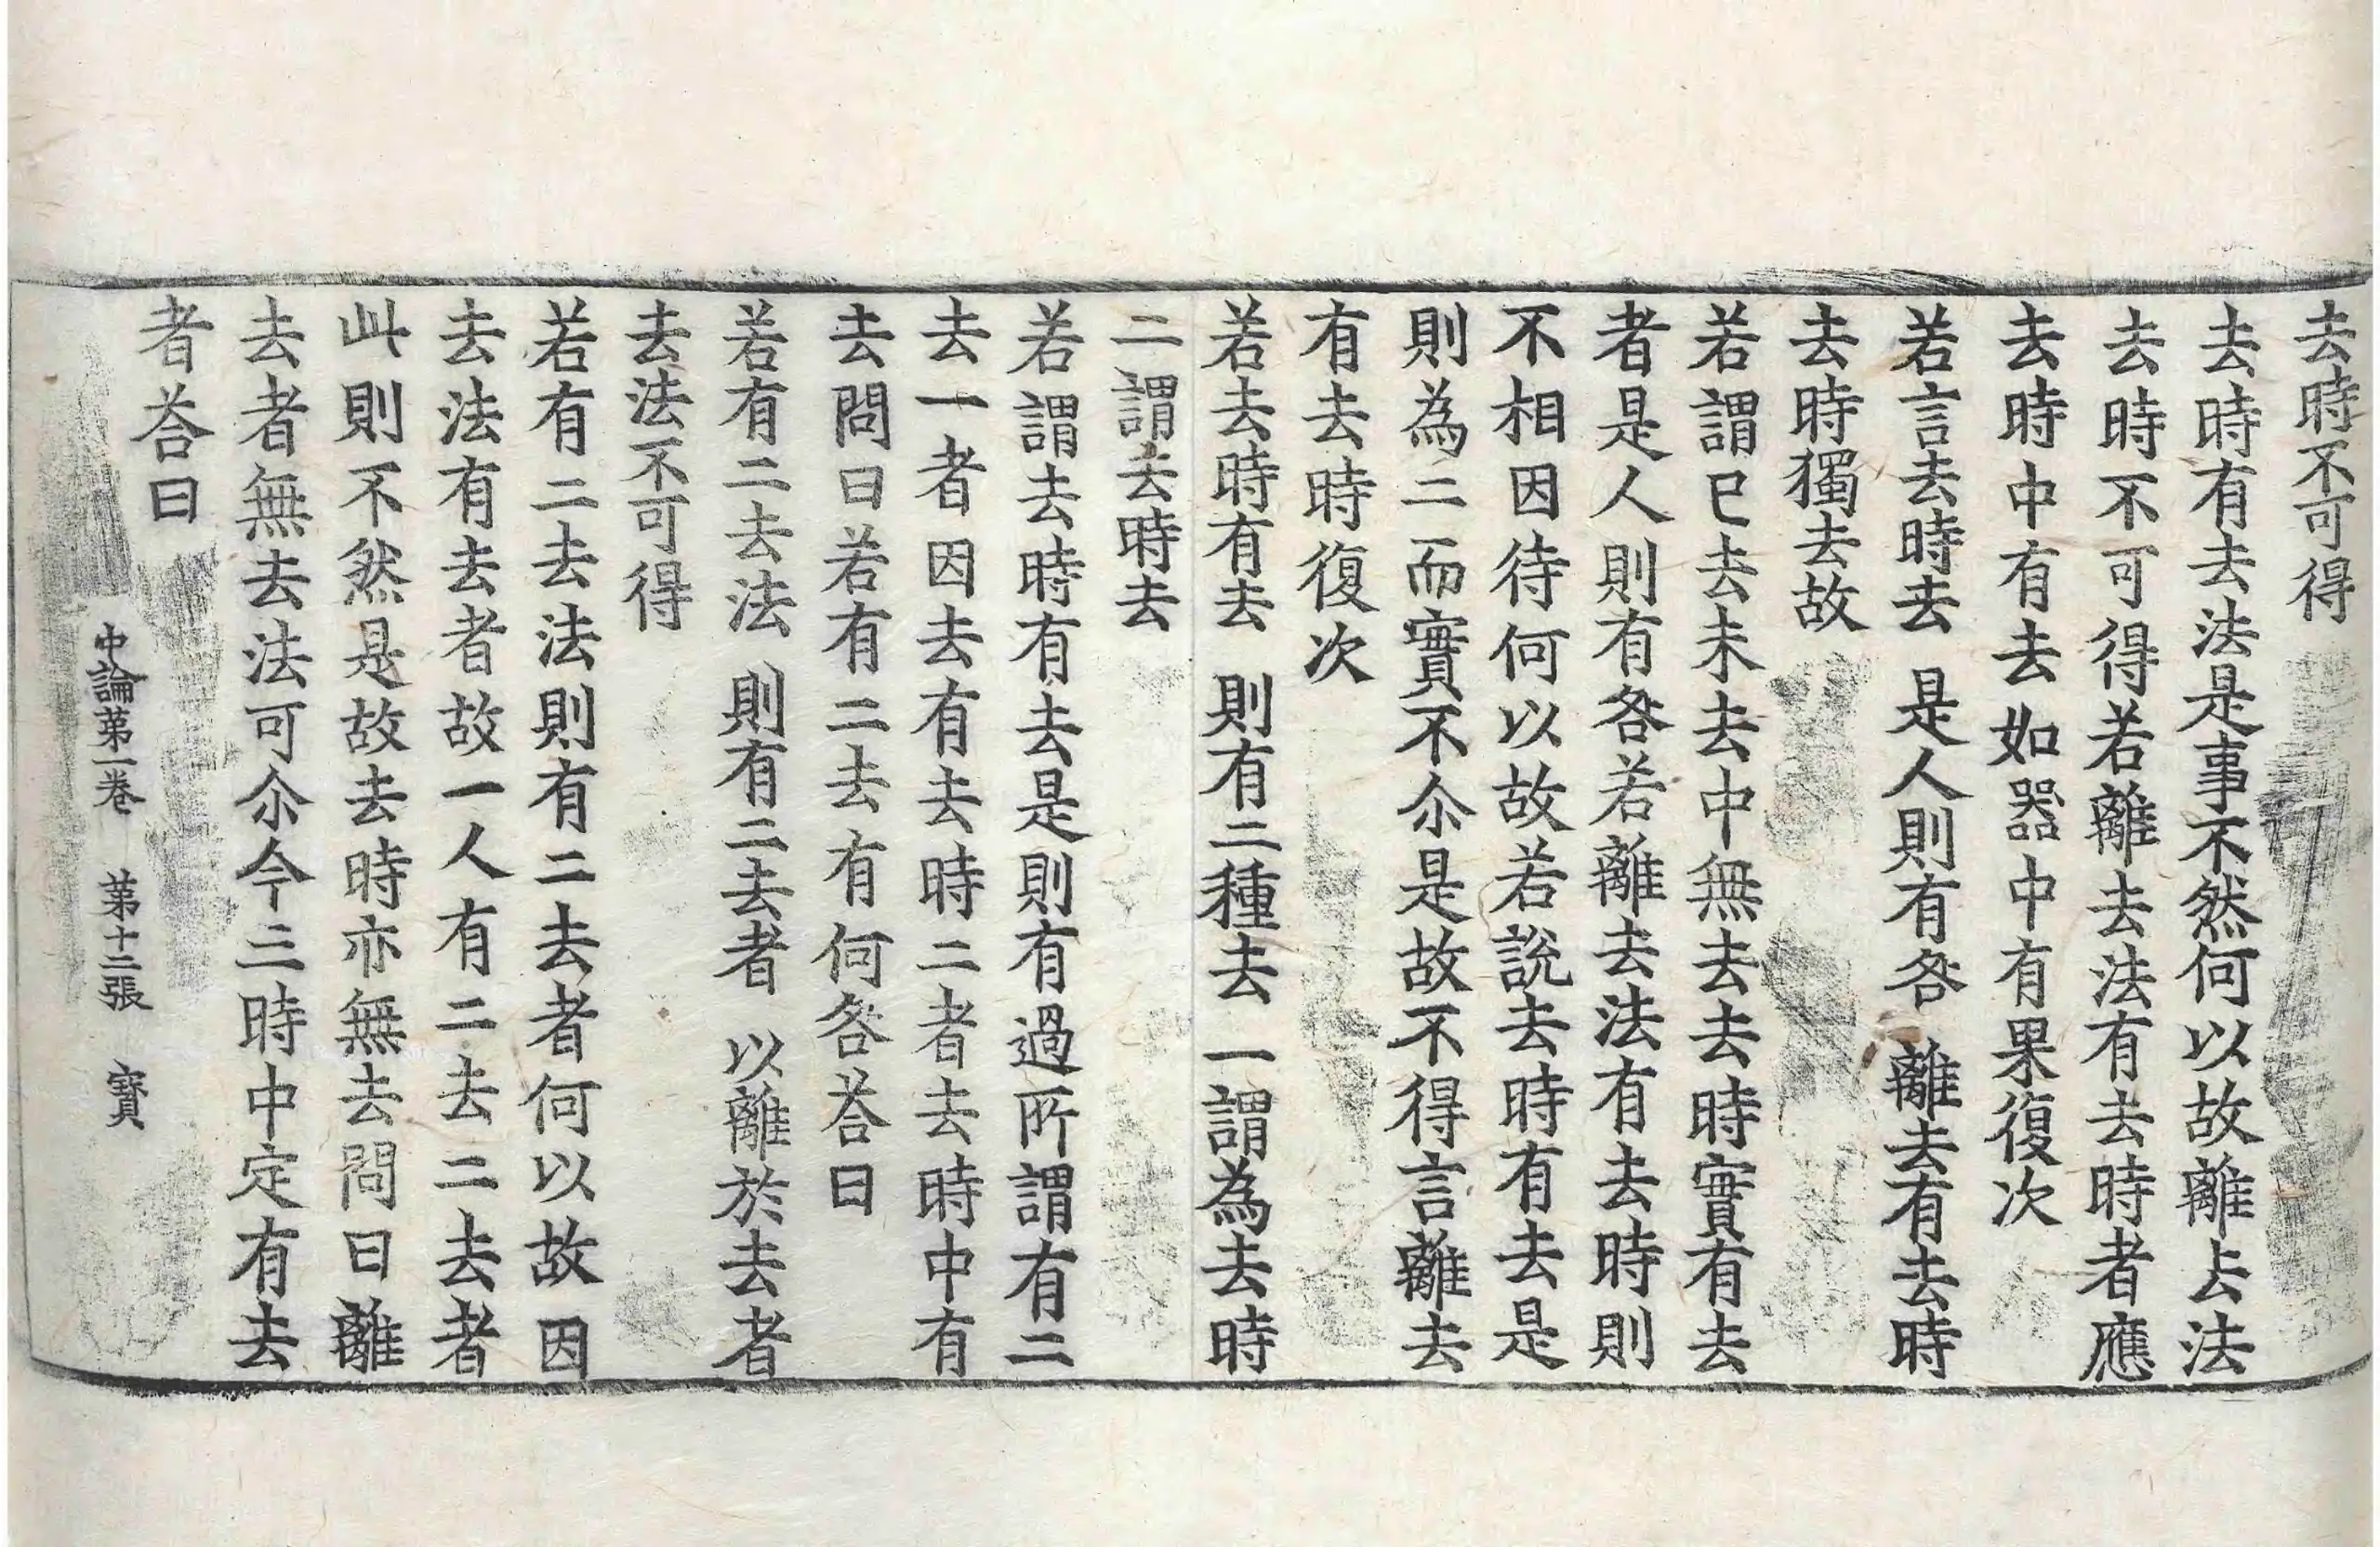 去時不可得
去時有去法是事不然何以故離去法
去時不可得若離去法有去時者應
去時中有去如器中有果復次
若言去時去　是人則有咎　離去有去時
去時獨去故
若謂已去未去中無去去時實有去
者是人則有咎若離去法有去時則
不相因待何以故若說去時有去是
則為二而實不尒是故不得言離去
有去時復次
若去時有去　則有二種去　一謂為去時
二謂去時去
若謂去時有去是則有過所謂有二
去一者因去有去時二者去時中有
去問曰若有二去有何咎荅曰
若有二去法　則有二去者　以離於去者
去法不可得
若有二去法則有二去者何以故因
去法有去者故一人有二去二去者
此則不然是故去時亦無去問曰離
去者無去法可尒今三時中定有去
者荅曰
中論第一卷　第十二張　寶